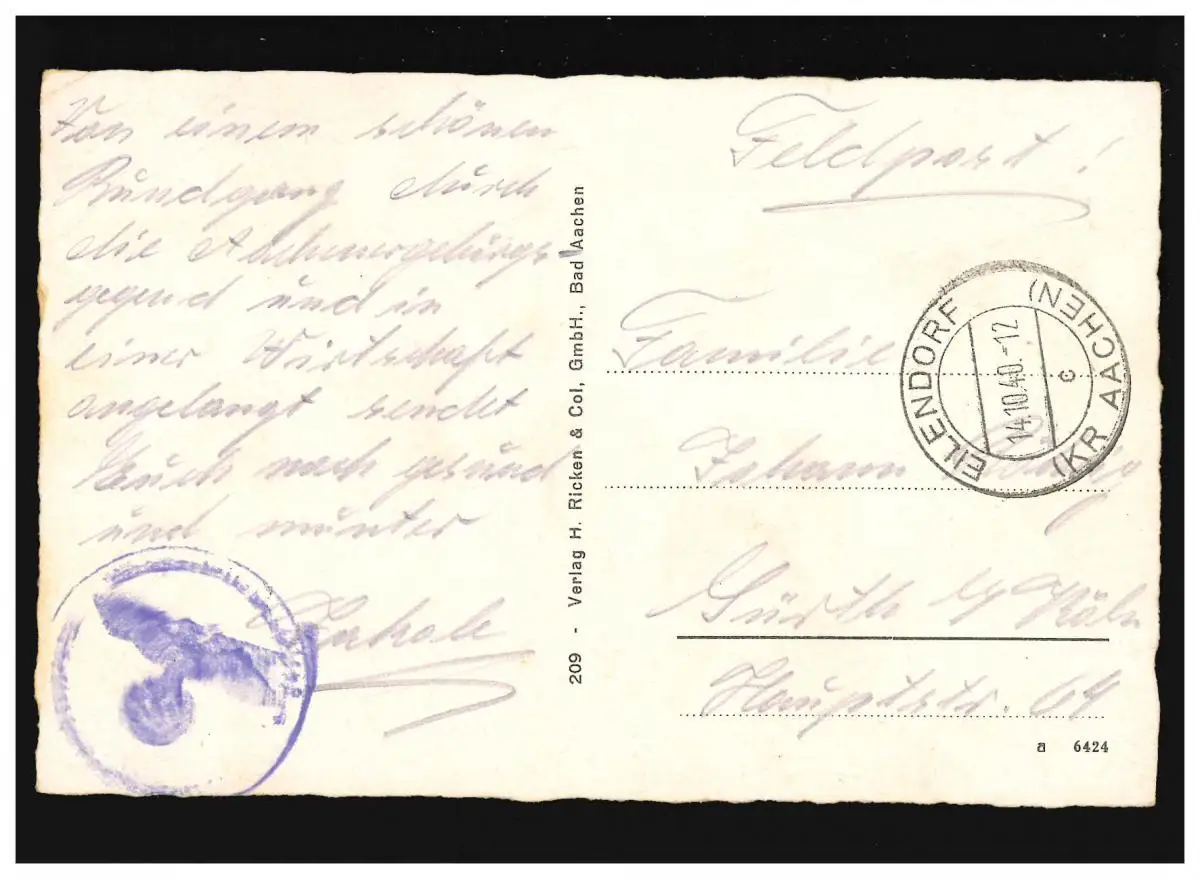 Von einem schönen
Rundgang durch
die Aachenergebirgs-
gegend und in
einer Wirtschaft
angelangt sendet
Euch noch gesund
und munter
209 - Verlag H. Ricken & Col, GmbH., Bad Aachen
Feldpost!
EILENDORF
(KR AACHEN)
14.10.40.-12
c
Familie
Johann
Gürth Köln
Hauptstr. 64
a 6424